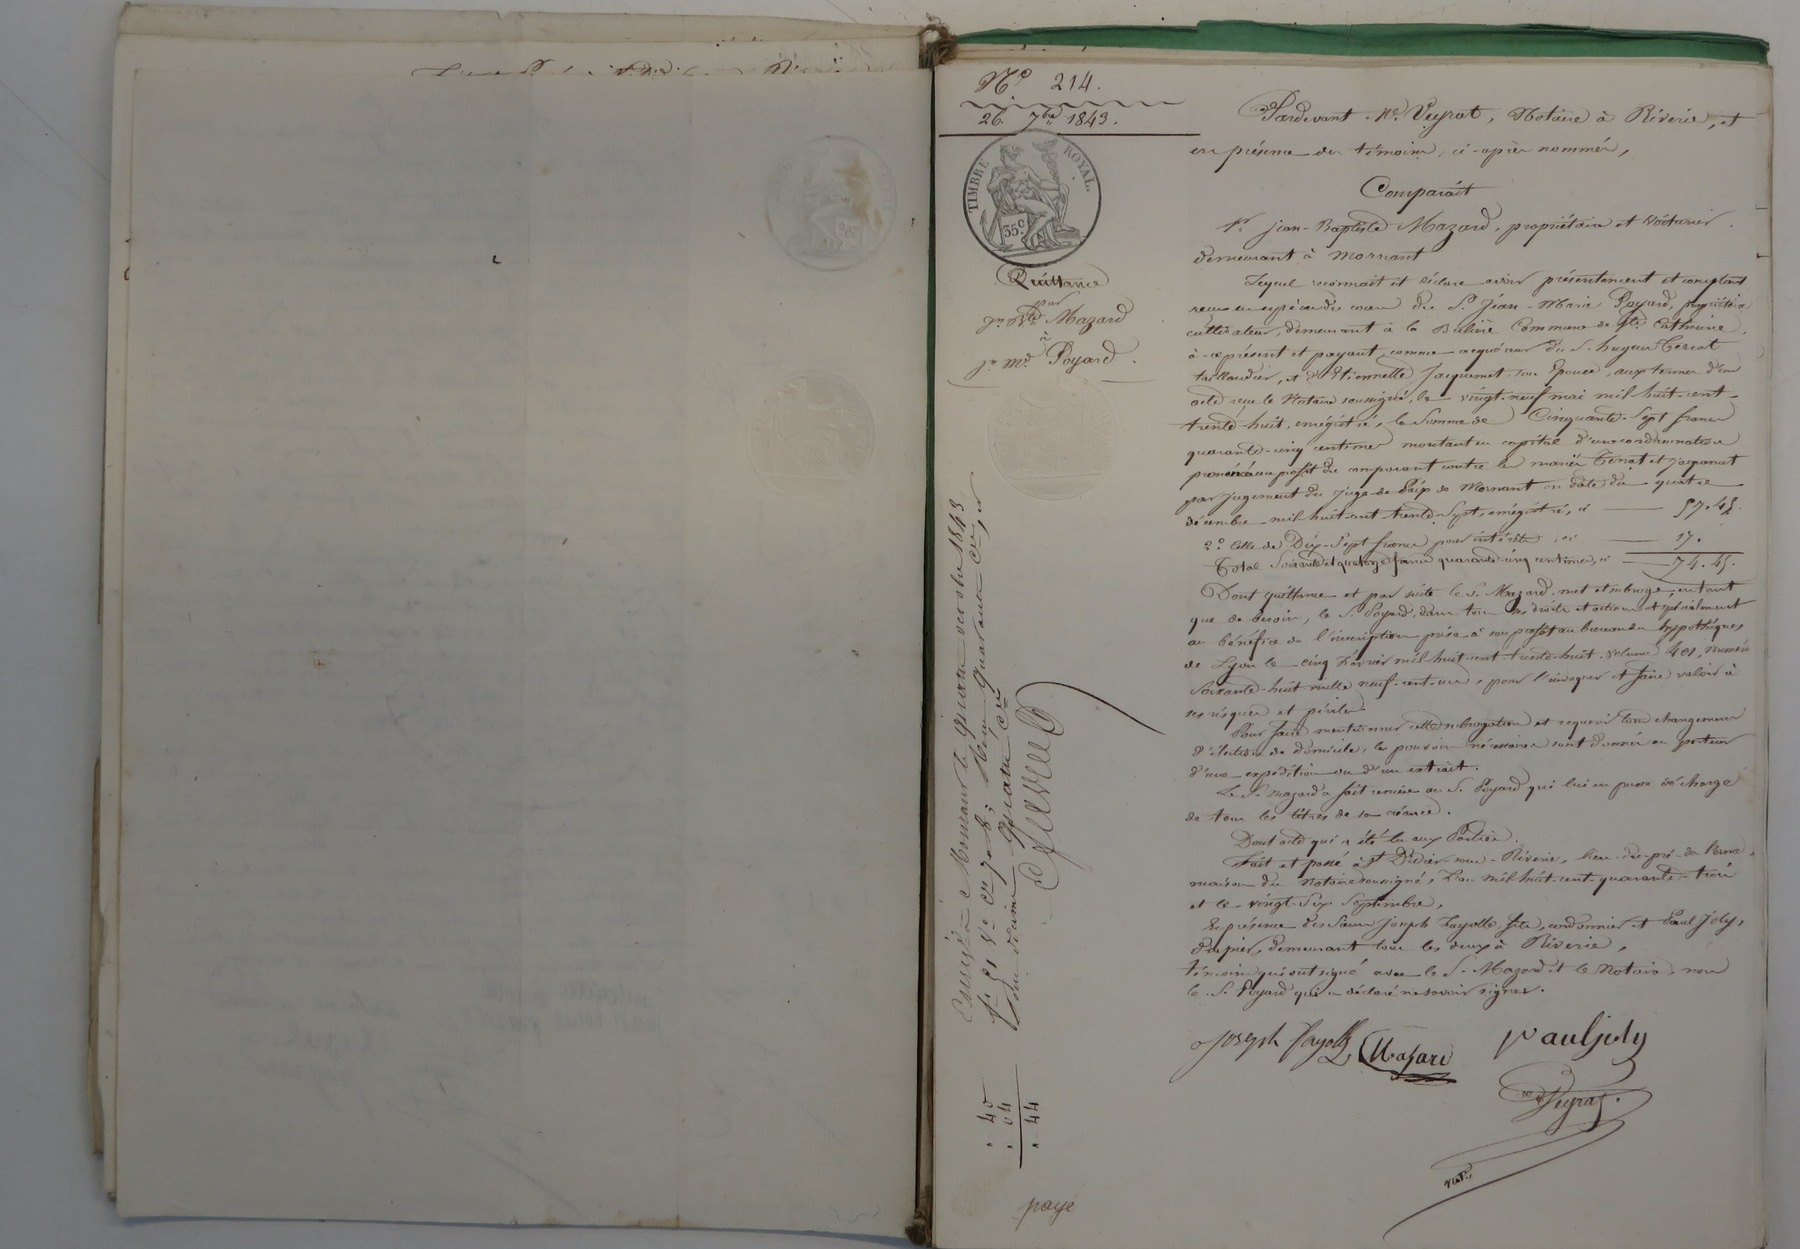 N.o 214.
26. 7bre 1843.
TIMBRE ROYAL.
35c
Quittance
par
Jn Bte Mazard
à
Jn Mie Poyard.
Enregistré à Mornant le quatre octobre 1843
fo 51 Vo Cse 7 et 8; Reçu quarante cmes et
pour décime quatre cmes
" 40
" 04
" 44
paye
Pardevant Me Veyrat, Notaire à Riverie, et
en présence des témoins, ci-après nommés,
Comparaît
Sr Jean-Baptiste Mazard, propriétaire et Voiturier
demeurant à Mornant
Lequel reconnait et déclare avoir présentement et comptant
reçu en espèces du cours du Sr Jean-Marie Poyard, propriétaire
cultivateur, demeurant à la Commune de Ste Catherine,
à ce présent et payant, comme acquéreur du Sr hugues Terrat
taillandier, et d'Etiennette Jacquemet son Epouse, aux termes d'un
acte reçu le Notaire soussigné, le vingt-neuf mai mil huit-cent-
trente-huit, enrégistré, la Somme de Cinquante-Sept francs
quarante-cinq centimes montant en capital d'une condamnation
prononcée au profit du comparant contre les mariés Terrat et Jacquemet
par Jugement du Juge de Paix de Mornant en date du quatre
décembre mil huit-cent-trente-Sept, enrégistré, ci 57.45.
2o Celle de Dix-Sept francs pour intérêts, ci 17.
Total Soixante et quatorze francs quarante-cinq centimes, ci 74.45.
Dont quittance et par suite le Sr Mazard met et subroge, en tant
que de besoin, le Sr Poyard, dans tous ses droits et actions et spécialement
au bénéfice de l'inscription prise à son profit au bureau des hypothèques
de Lyon le cinq février mil huit-cent-trente-huit, volume 401, Numéro
Soixante-huit mille neuf-cent-un, pour l'invoquer et faire valoir à
ses risques et périls.
Pour faire mentionner cette subrogation et requerir tous changemens
d'élection de domicile, les pouvoirs nécessaires sont donnés au porteur
d'une expédition ou d'un extrait.
Le Sr Mazard a fait remise au Sr Poyard qui lui en passe décharge
de tous les titres de sa créance.
Dont acte qui a été lu aux Parties.
Fait et passé à St Didier-sous-Riverie, lieu du pré de
maison du Notaire soussigné, L'an mil huit-cent-quarante-trois
et le vingt-Six Septembre,
En présence des Sieurs Joseph Fayolle fils, cordonnier et Paul Joly,
drapier, demeurant tous les deux à Riverie,
témoins qui ont signé avec le Sr Mazard et le Notaire, non
le Sr Poyard qui a déclaré ne savoir signer.
Joseph Fayolle Mazard Paul Joly
Veyrat